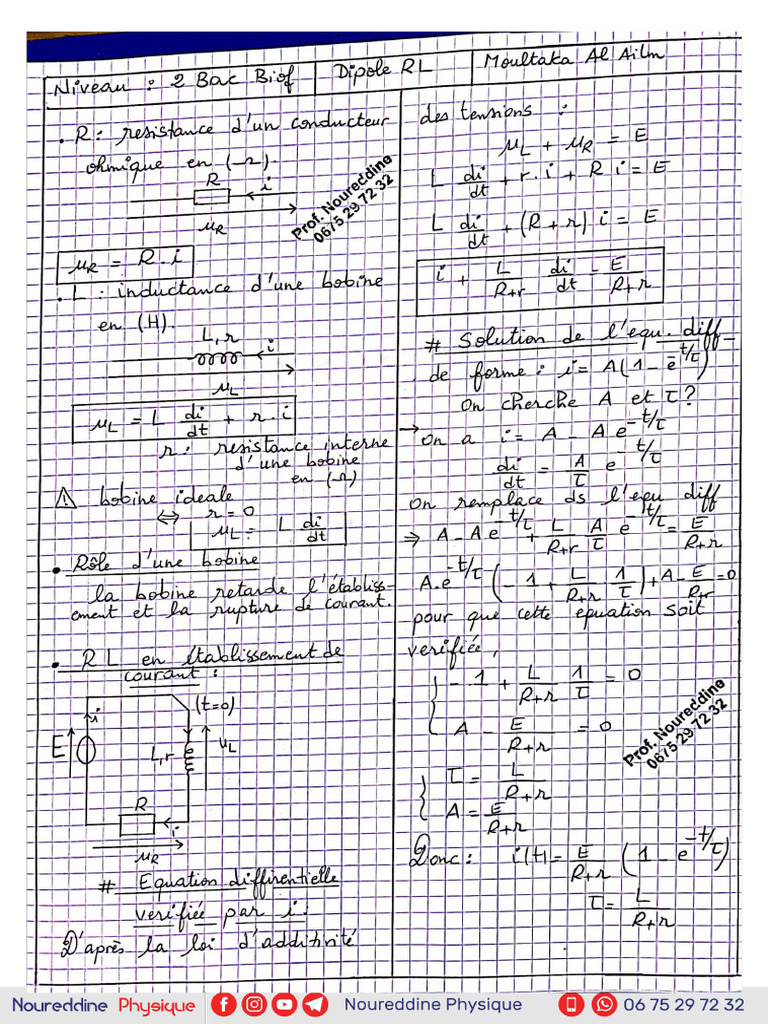 Niveau : 2 Bac Biof | Dipole RL | Moultaka Al Ailm
• R : resistance d'un conducteur
ohmique en (Ω).
R
i
uR
Prof. Noureddine
0675 29 72 32
uR = R . i
• L : inductance d'une bobine
en (H).
L, r
i
uL
uL = L di/dt + r . i
r : resistance interne
d'une bobine
en (Ω)
⚠ bobine ideale
⟺ r = 0
uL = L di/dt
• Rôle d'une bobine
la bobine retarde l'établiss-
ement et la rupture de courant.
• RL en établissement de
courant :
i
(t=0)
E
L,r
uL
R
i
uR
# Equation diffirentielle
verifiée par i :
D'après la loi d'additivité
des tensions :
uL + uR = E
L di/dt + r . i + R i = E
L di/dt + (R + r) i = E
i + L/(R+r) di/dt = E/(R+r)
# Solution de l'equ. diff
de forme : i = A(1 - e^-t/τ)
On cherche A et τ ?
→ on a i = A - A e^-t/τ
di/dt = A/τ e^-t/τ
On remplace ds l'equ diff
⇒ A - A e^-t/τ + L/(R+r) A/τ e^-t/τ = E/(R+r)
A . e^-t/τ ( - 1 + L/(R+r) . 1/τ ) + A - E/(R+r) = 0
pour que cette equation soit
verifiée,
{ - 1 + L/(R+r) 1/τ = 0
A - E/(R+r) = 0
Prof. Noureddine
0675 29 72 32
{ τ = L/(R+r)
A = E/(R+r)
Donc : i(t) = E/(R+r) (1 - e^-t/τ)
τ = L/(R+r)
Noureddine Physique
Noureddine Physique
06 75 29 72 32